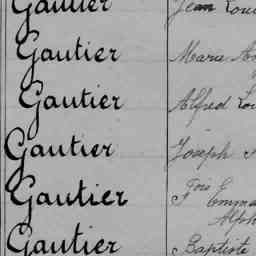 Gautier Jean Loui
Gautier Marie
Gautier Alfred
Gautier Joseph
Gautier
Alph
Gautier Baptiste